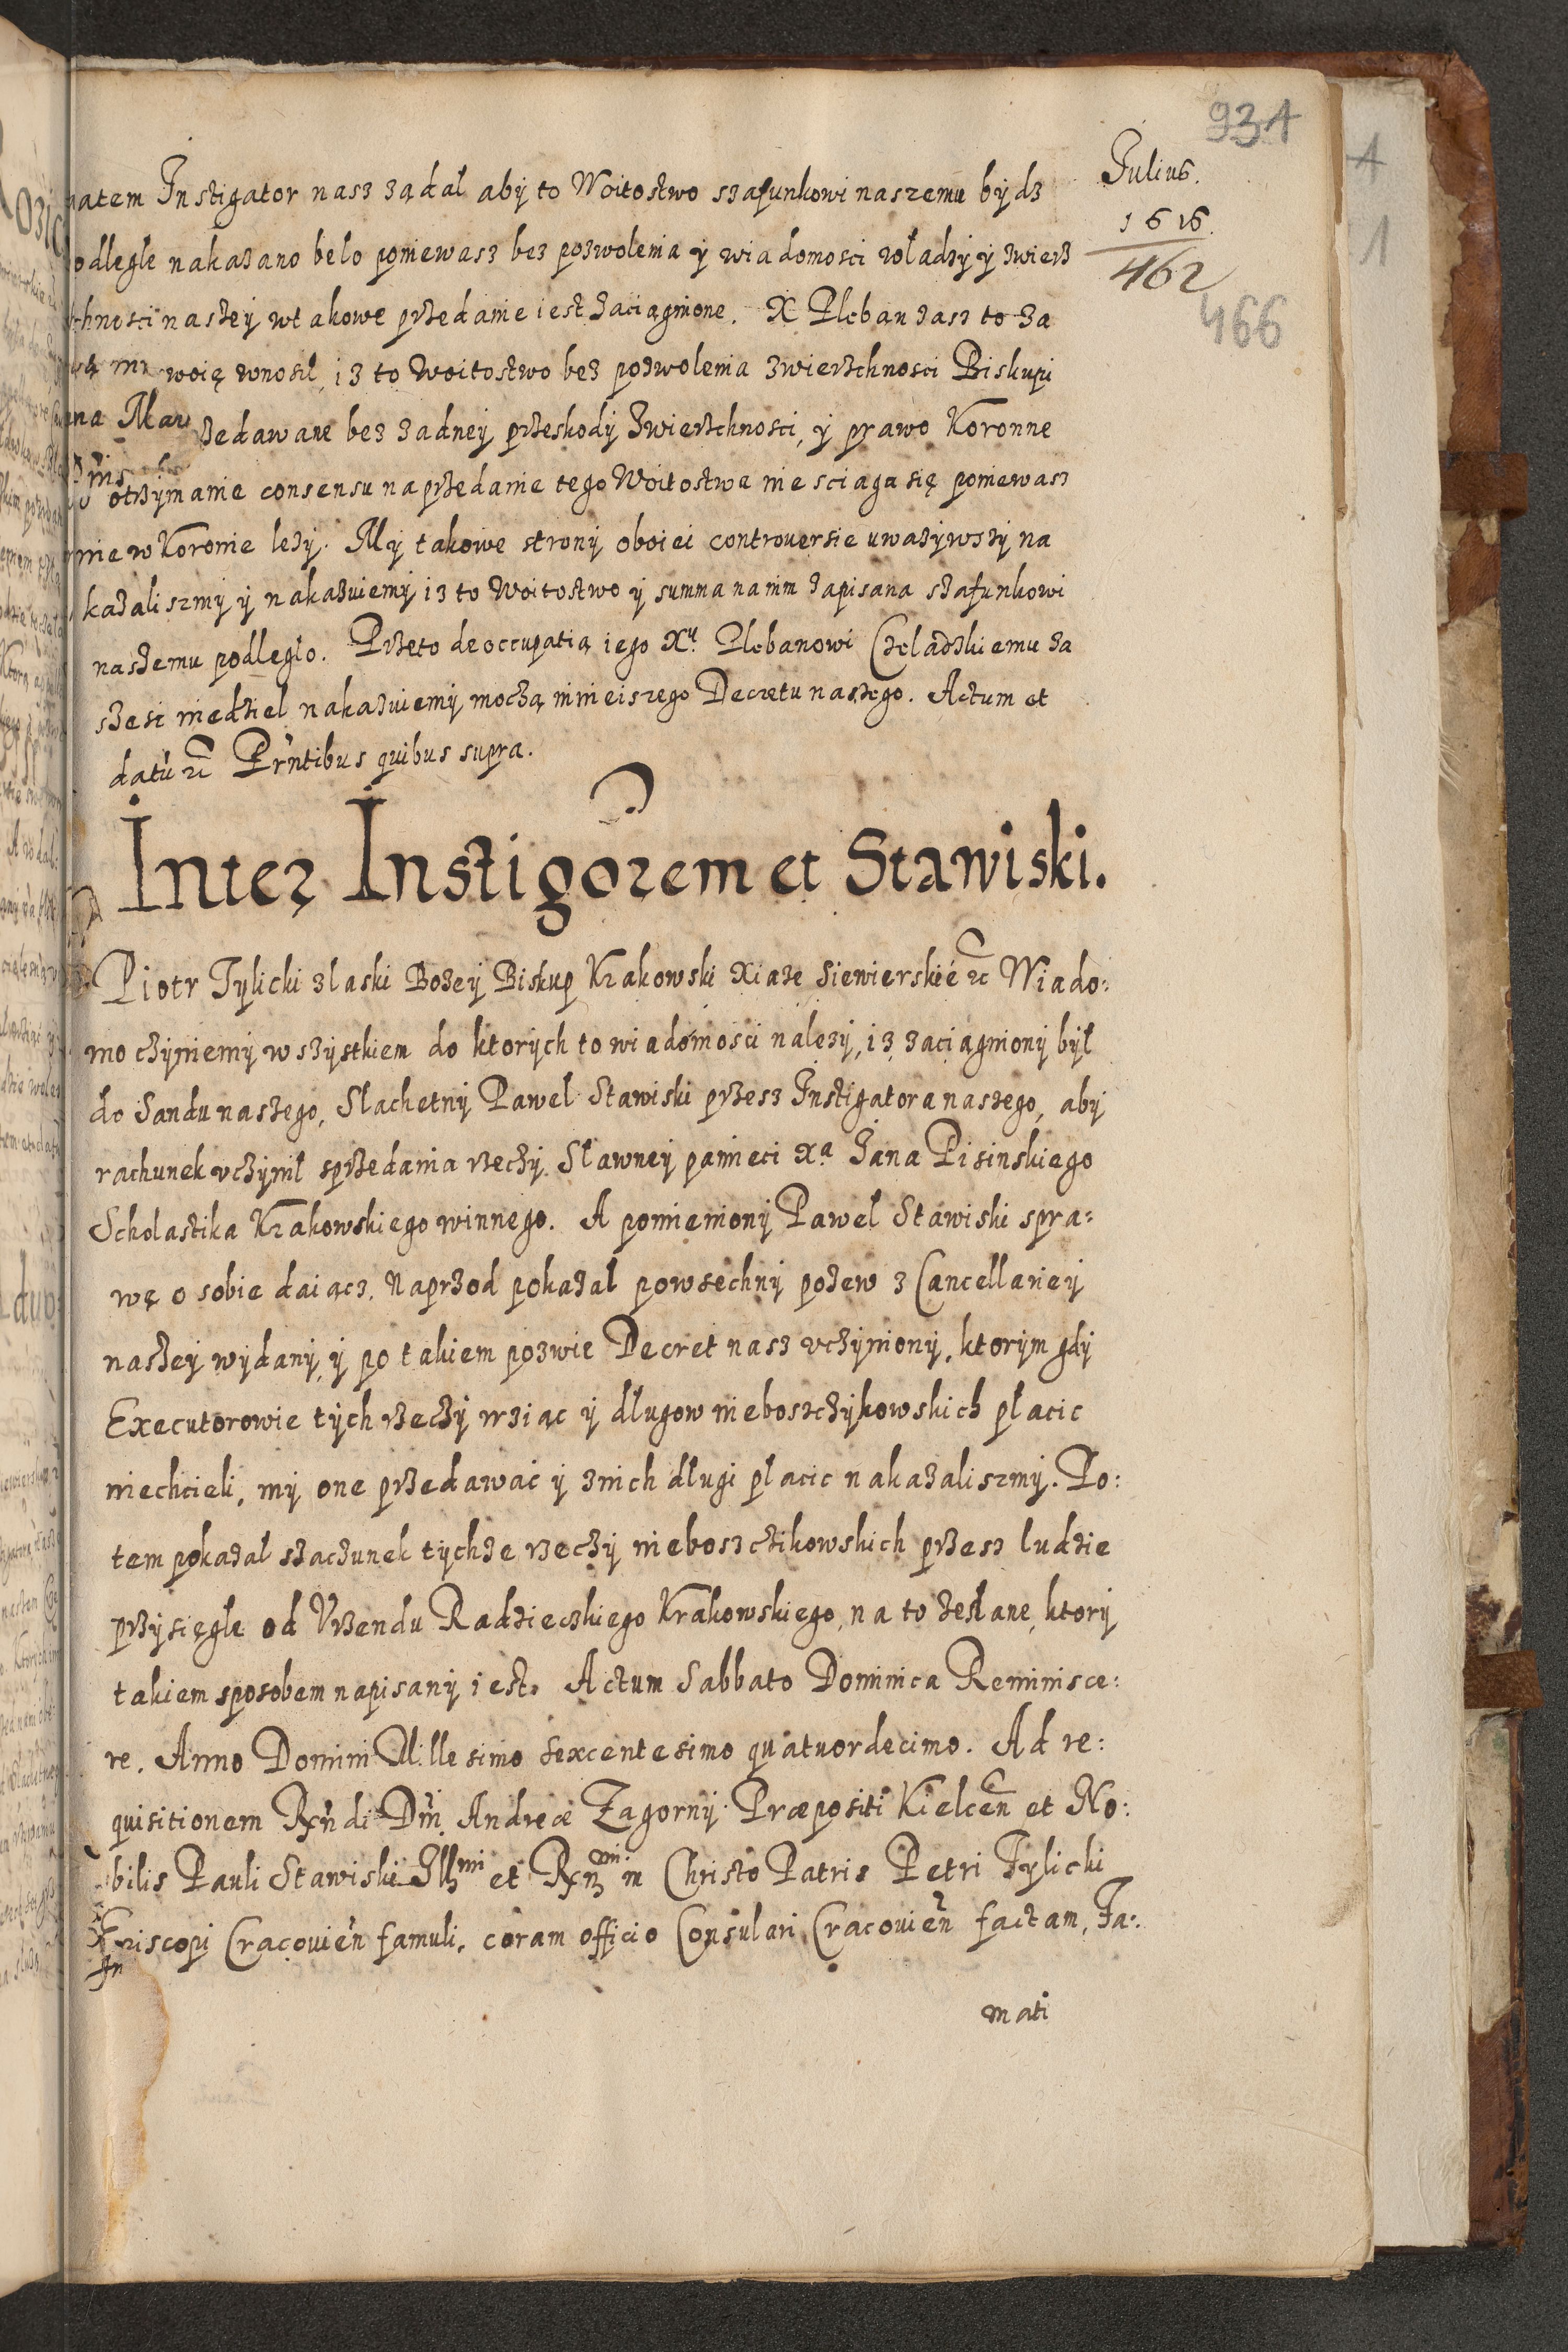 931
Julius.
1616.
462
466
1
1
Instigator nasz ządał abÿ to Woitostwo szafunkowi naszemu bÿdz
odlegle nakazano beło poniewasz bez pozwolenia ÿ wiadomosci władzÿ ÿ zwierz
chnosci naszeÿ w takowe przedanie iest zaciągnione. X Pleban zasz to za
woię wnosił, iz to Woitostwo bez pozwolenia zwierzchnosci Biskupi
zedawane bez zadneÿ przeskodÿ Zwierzchnosci, ÿ prawo Koronne
otrzÿmanie consensu na przedanie tego Woitostwa nie sciaga się poniewasz
nie w Koronie lezÿ. Mÿ takowe stronÿ oboiei controuersie uwazÿwszÿ na
kazaliszmÿ ÿ nakazuiemÿ iz to Woitostwo ÿ summa na nim zapisana szafunkowi
naszemu podległo. Przeto deoccupatią iego Xu Plebanowi Czeladzkiemu za
szesc niedziel nakazuiemÿ moczą ninieiszego Decretu naszego. Actum et
datũ ꝛc Prñtibus quibus supra.
Inter Instigorem et Stawiski.
Piotr Tylicki z laski Bozeÿ Biskup Krakowski Xiaze Siewierskié ꝛc Wiado:
mo czÿniemÿ wszÿstkiem do ktorÿch to wiadomosci nalezÿ, iz zaciągnionÿ bÿł
do Sandu naszego, Slachetnÿ Paweł Stawiski przesz Instigatora naszego, abÿ
rachunek vczÿnił sprzedania rzeczÿ Sławneÿ pamieci Xa Jana Pisinskiego
Scholastika Krakowskiego winnego. A pomienionÿ Paweł Stawiski spra:
wę o sobie daiącz, Naprzod pokazał powsechnÿ pozew z Cancellarieÿ
naszeÿ wÿdanÿ, ÿ po takiem pozwie Decret nasz vczÿnionÿ, ktorÿm gdÿ
Executorowie tÿch rzeczÿ wziąc ÿ długow nieboszczÿkowskich płacic
niechcieli, mÿ one przedawać ÿ z nich długi płacic nakazaliszmÿ. Po:
tem pokazał szaczunek tÿchze rzeczÿ nieboszczikowskich przesz ludzie
przÿsięgłe od Vrzendu Radzieczkiego Krakowskiego, na to zesłane, ktorÿ
takiem sposobem napisanÿ iest. Actum Sabbato Dominica Reminisce:
re. Anno Domini Millesimo Sexcentesimo quatuordecimo. Ad re:
quisitionem Rñdi Dñi Andreæ Zagornÿ Præpositi Kielceñ et No:
bilis Pauli Stawiski Illmi et Rmi in Christo Patris Petri Tylicki
Episcopi Cracouieñ famuli, coram officio Consulari Cracouieñ factam, Fa:
mati